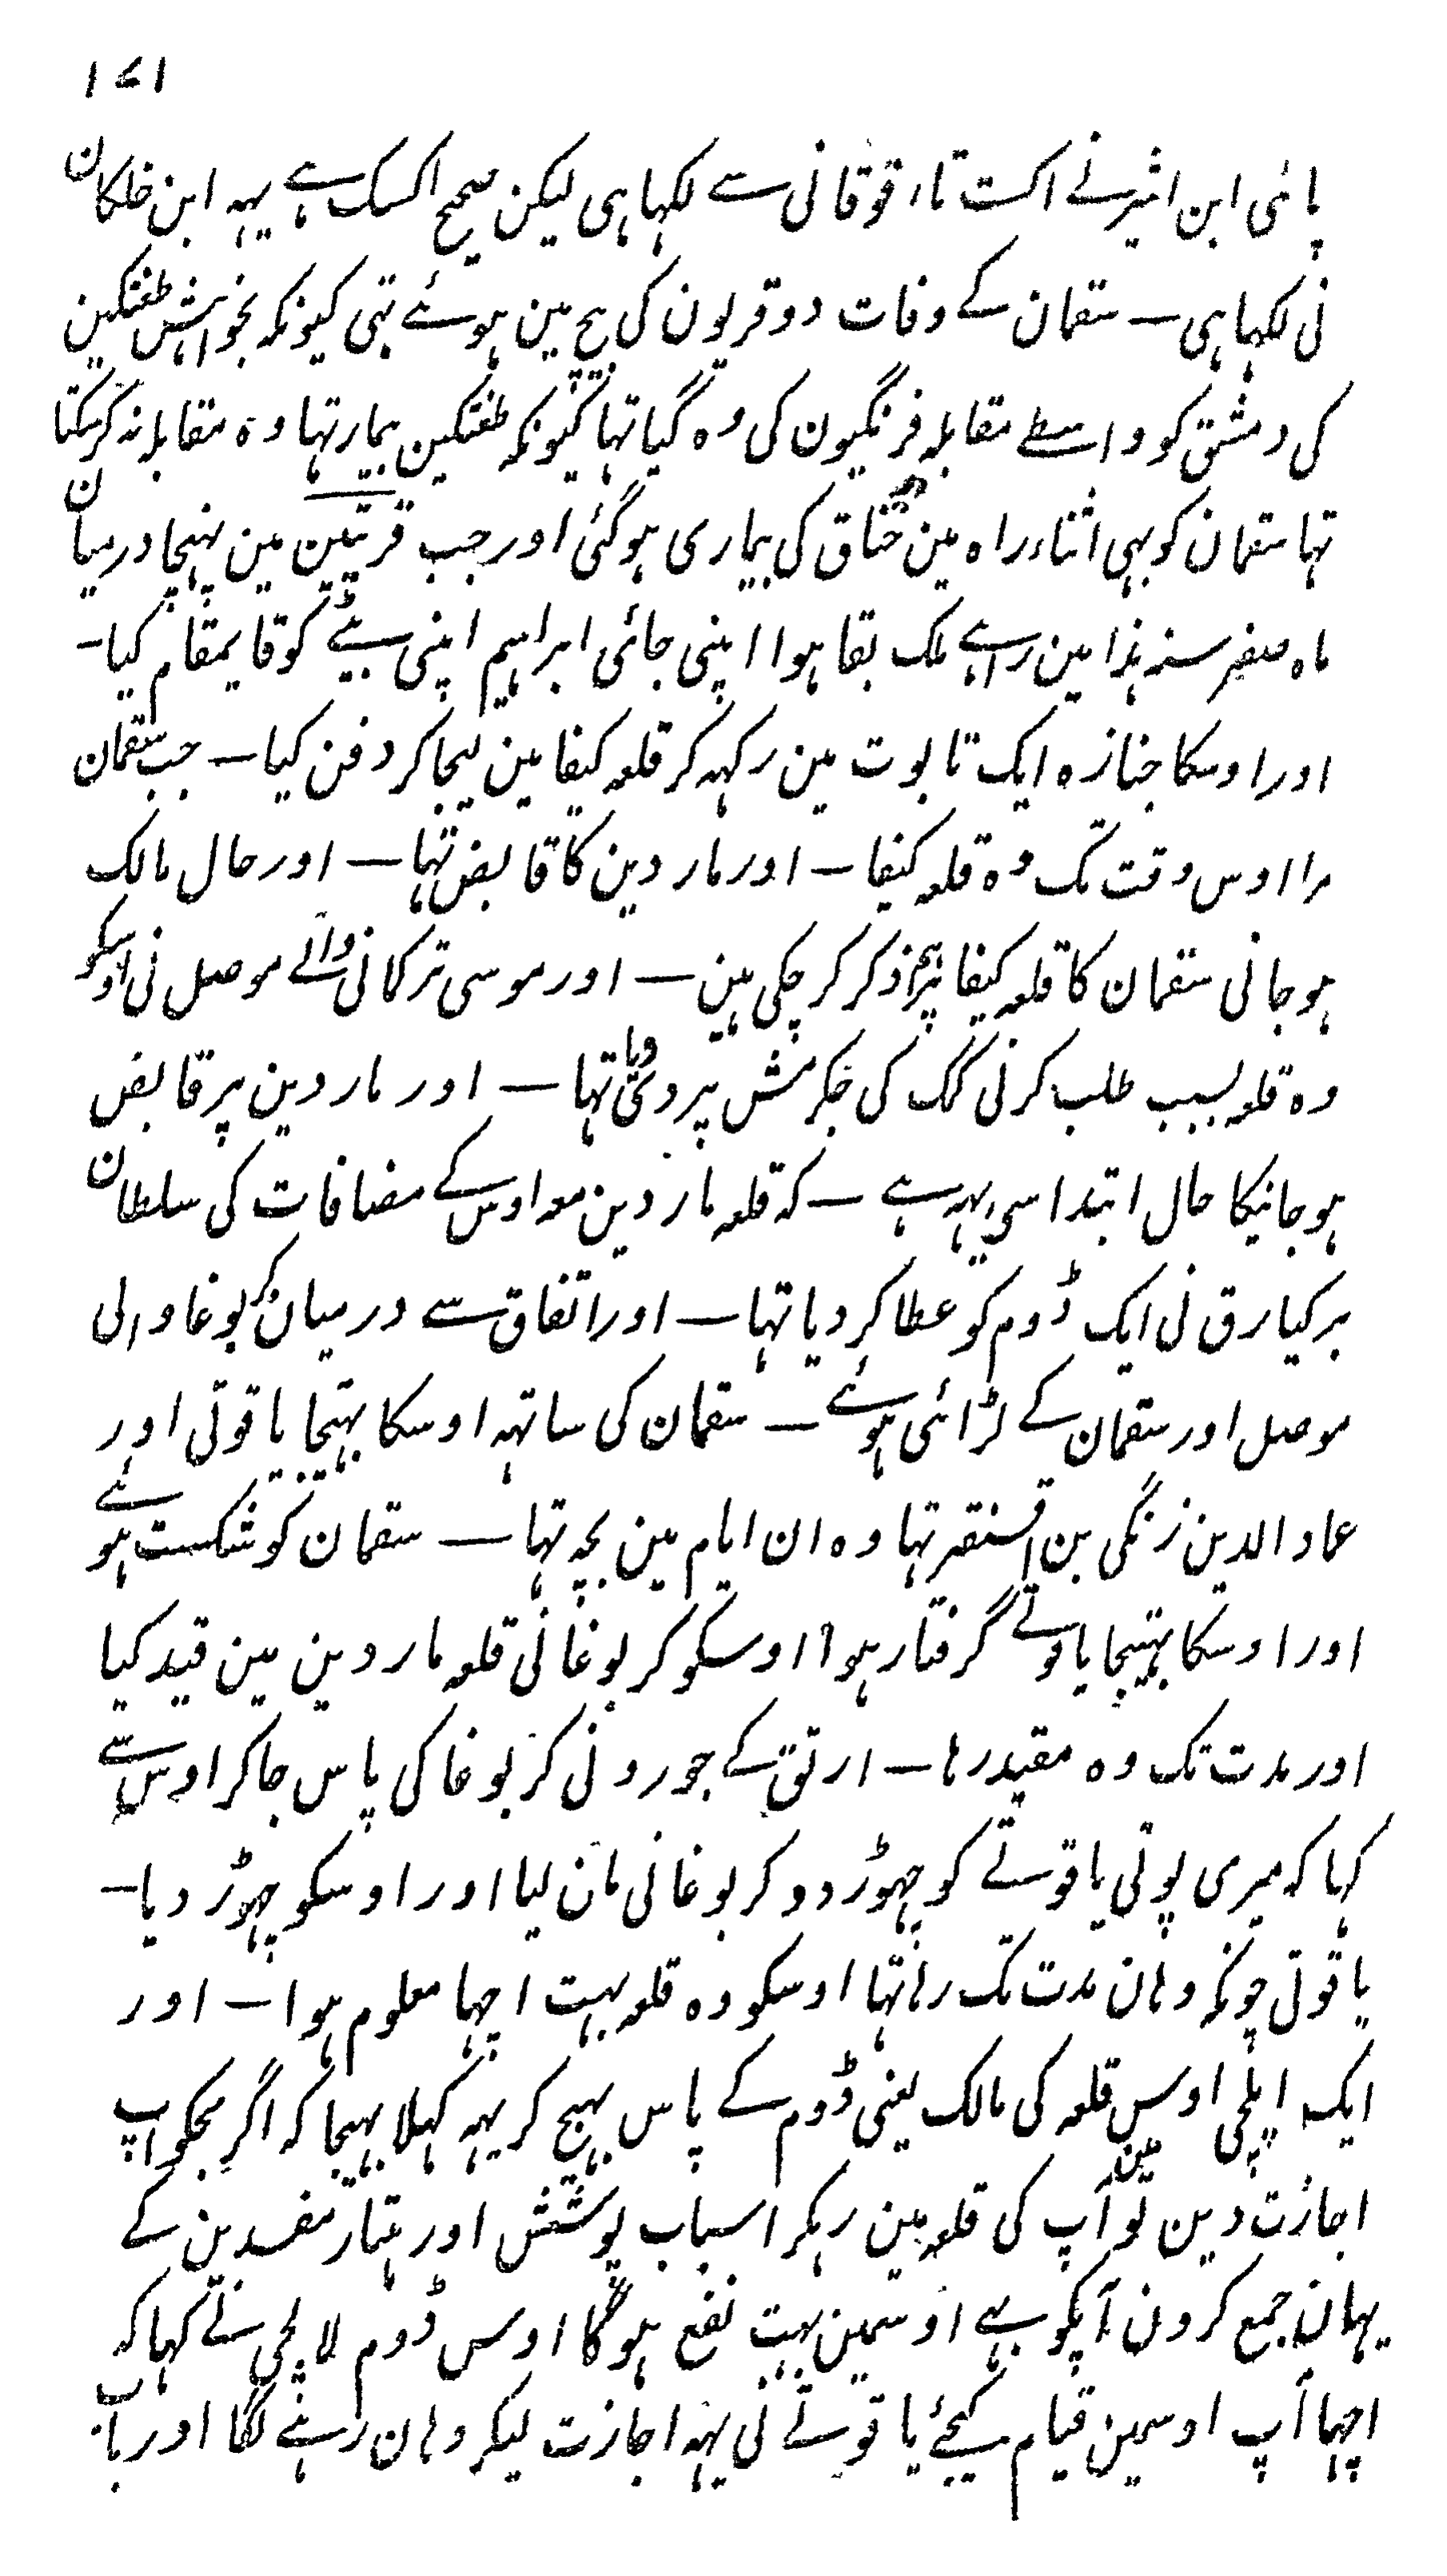 ۱۷۱
پائی ابن اثیر نے اکست تاء قوقانی سے لکہا ہی لیکن صحیح اکسک ہے یہہ ابن خلکان
نی لکہا ہی ــ سقمان کے وفات دو قریون کی بیچ مین ہوئے تہی کیونکہ بخواہش طغتکین
کی دمشق کو واسطے مقابلہ فرنگیون کی وہ گیا تہا کیونکہ طغتکین بیمار تہا وہ مقابلہ نہ کرسکتا
تہا سقمان کو بہی اثناء راہ مین خناق کی بیماری ہوگئی اور جب قرتیین مین پہنچا درمیان
ماہ صفر سنہ ہذا مین راہے ملک بقا ہوا اپنی جائی ابراہیم اپنی بیٹے کو قایمقام کیا ــ
اور اوسکا جنازہ ایک تابوت مین رکہہ کر قلعہ کیفا مین لیجا کر دفن کیا ــ جب سقمان
مرا اوس وقت تک وہ قلعہ کیفا ــ اور ماردین کا قابض تہا ــ اور حال مالک
ہو جانی سقمان کا قلعہ کیفا پر ہم ذکر کر چکی ہین ــ اور موسی ترکمانی والے موصل نی اوسکو
وہ قلعہ بسبب طلب کرنی کمک کی جکرمش پر دیا تہا ــ اور ماردین پر قابض
ہو جانیکا حال ابتدا سی یہہ ہے ــ کہ قلعہ ماردین معہ اوس کے مضافات کی سلطان
برکیارق نی ایک ڈوم کو عطا کر دیا تہا ــ اور اتفاق سے درمیان کربوغا والی
موصل اور سقمان کے لڑائی ہوئے ــ سقمان کی ساتہہ اوسکا بہتیجا یاقوتی اور
عماد الدین زنگی بن اقسنقر تہا وہ ان ایام مین بچہ تہا ــ سقمان کو شکست ہوئے
اور اوسکا بہتیجا یاقوتے گرفتار ہوا اوسکو کربوغا نی قلعہ ماردین مین قید کیا
اور مدت تک وہ مقید رہا ــ ارتق کے جورو نی کربوغا کی پاس جا کر اوس سے
کہا کہ میری پوتی یاقوتے کو چہوڑ دو کربوغا نی مان لیا اور اوسکو چہوڑ دیا ــ
یاقوتی چونکہ وہان مدت تک رہا تہا اوسکو وہ قلعہ بہت اچہا معلوم ہوا ــ اور
ایک ایلچی اوس قلعہ کی مالک یعنی ڈوم کے پاس بہیج کر یہہ کہلا بہیجا کہ اگر مجکو آپ
اجازت دین تو مین آپ کی قلعہ مین رہکر اسباب پوشش اور ہتیار مفسدین کے
یہان جمع کرون آپکو بہے اوسمین بہت نفع ہوگا اوس ڈوم لالچی نے کہا کہ
اچہا آپ اوسمین قیام کیجئے یاقوتے نی یہہ اجازت لیکر وہان رہنے لگا اور باب